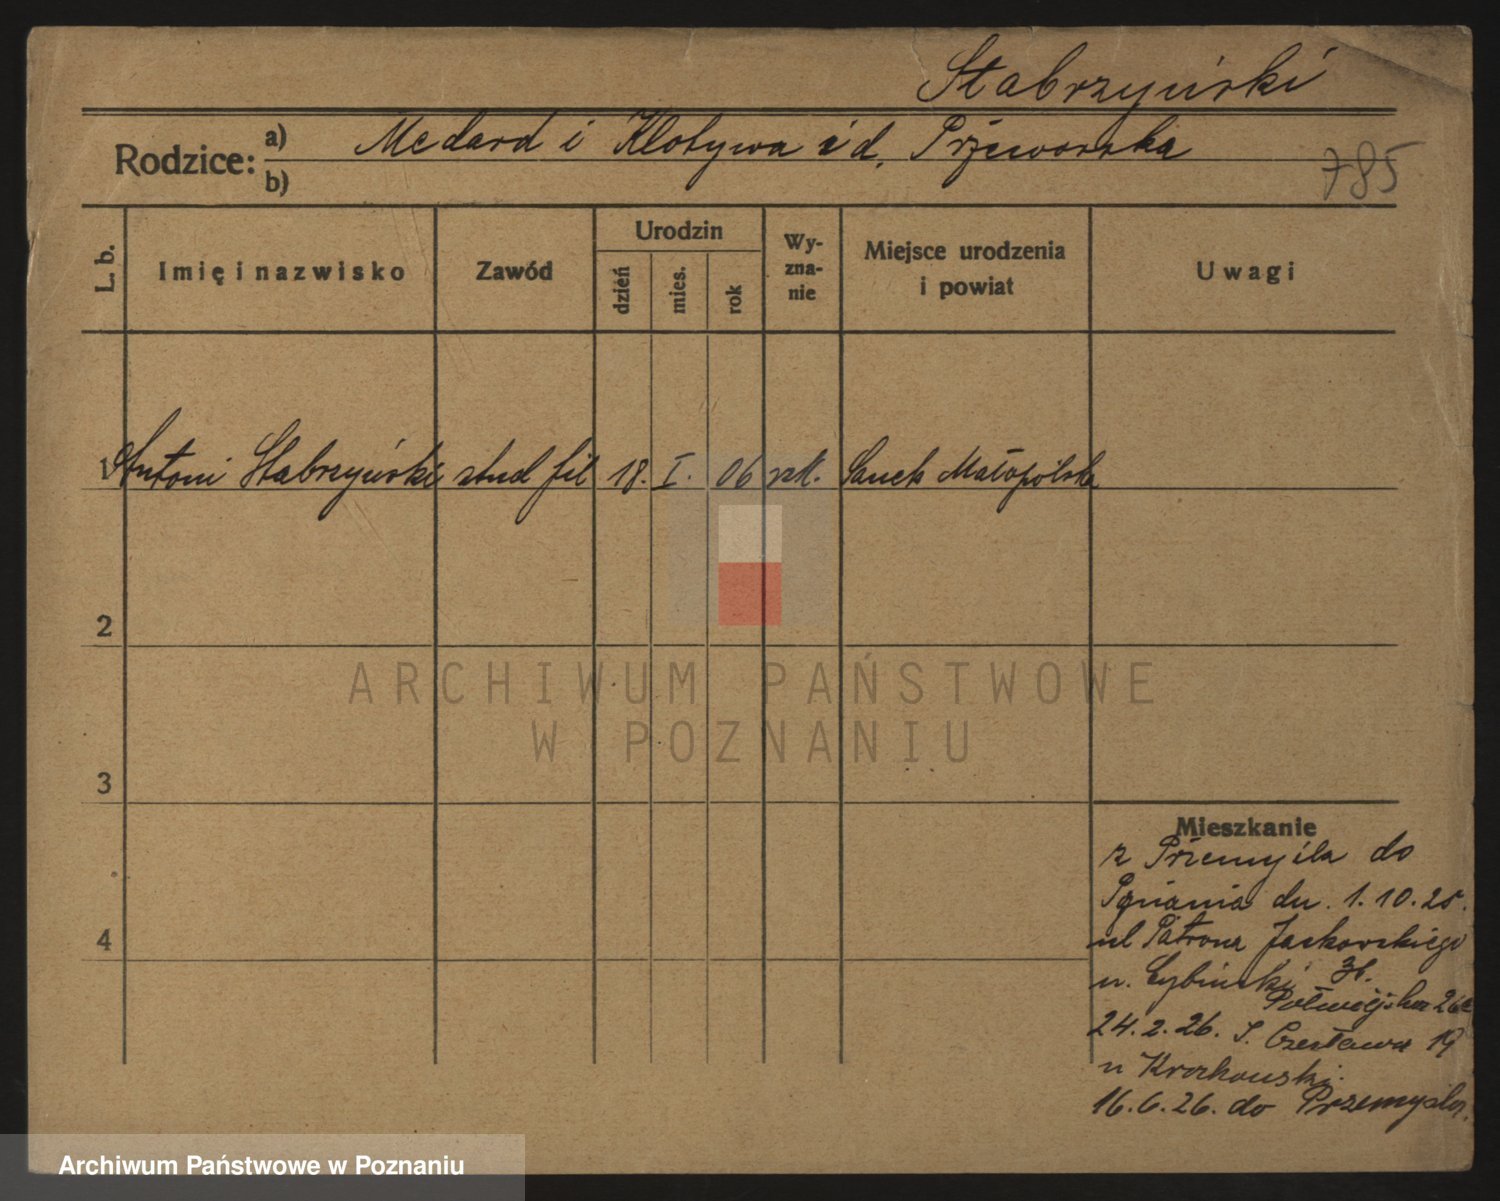 Stabrzyński
Rodzice: a) Medard i Klotywa i d. Przeworska
b)
785
L. b.
Imię i nazwisko
Zawód
Urodzin
dzień
mies.
rok
Wy-
zna-
nie
Miejsce urodzenia
i powiat
Uwagi
1 Antoni Stabrzyński stud fil 18. I. 06 rzk. Sanok Małopolska
2
3
4
Mieszkanie
z Przemyśla do
Pznania dn. 1.10.25.
ul Patrona Jackowskiego
u. Cybinski 36.
Półwiejska 26a
24.2.26. S. Czesława 19
u Krockowski.
16.6.26. do Przemyśla.
ARCHIWUM PAŃSTWOWE
W POZNANIU
Archiwum Państwowe w Poznaniu